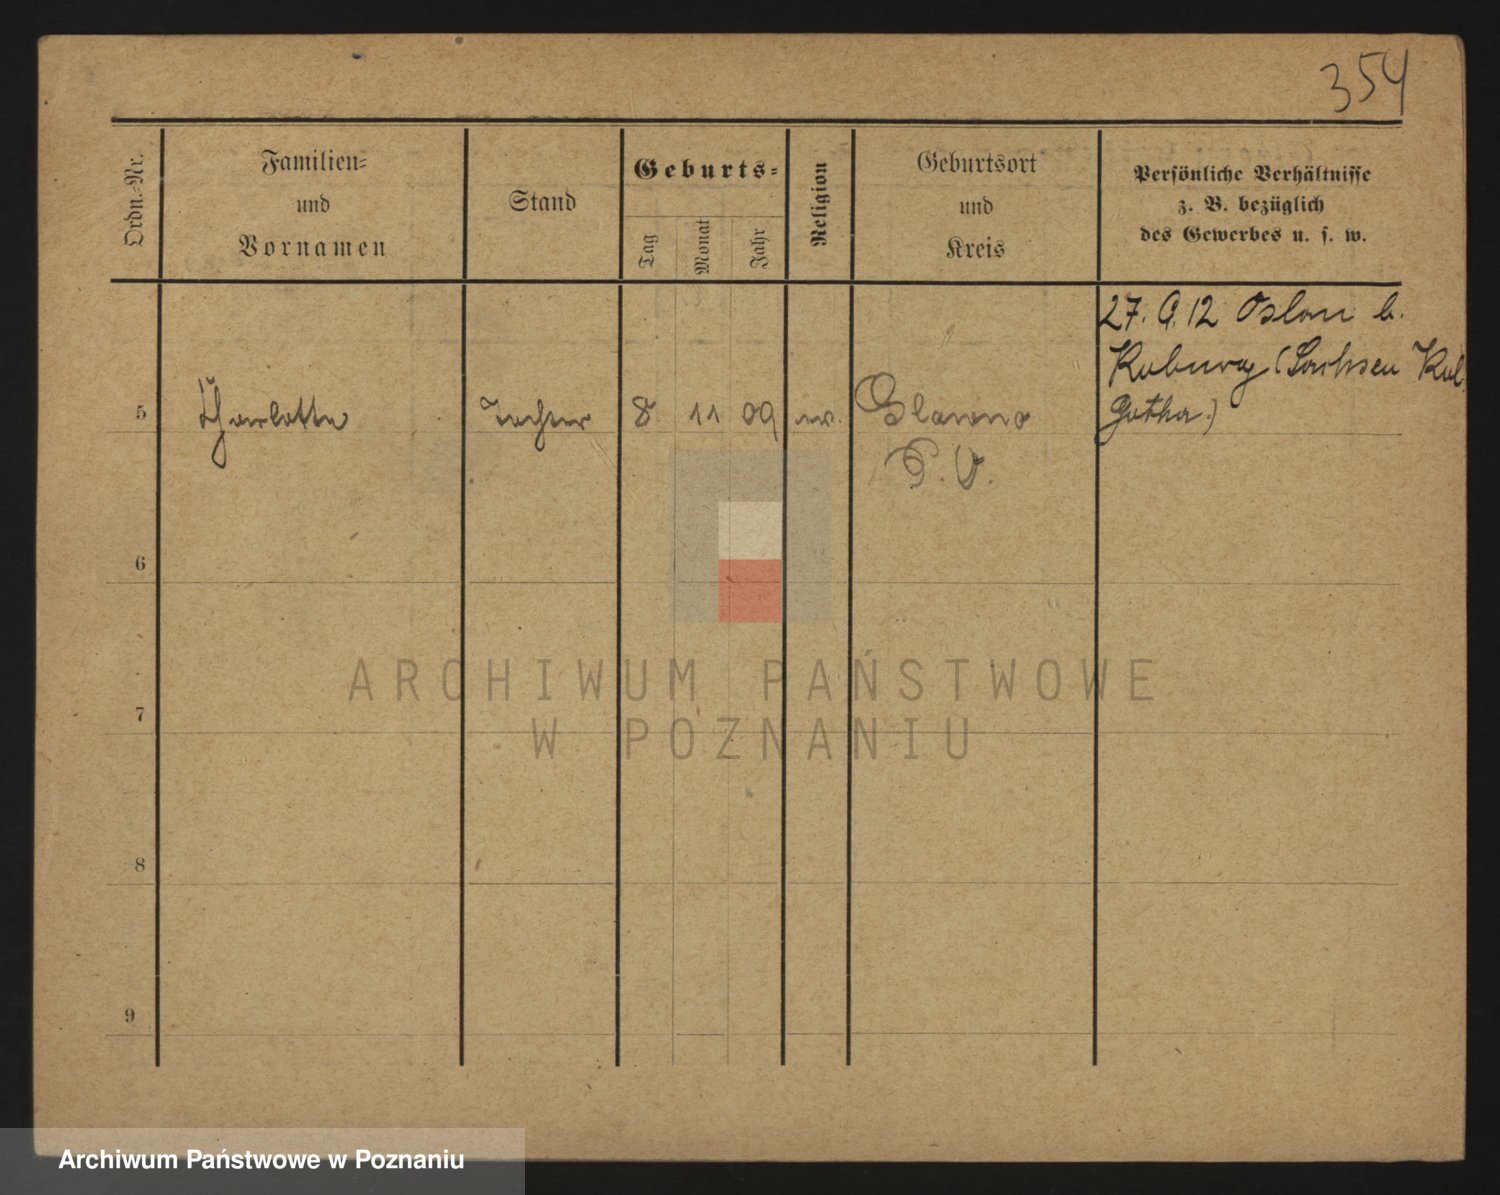 354
Ordn.-Nr.
Familien-
und
Vornamen
Stand
Geburts-
Tag
Monat
Jahr
Religion
Geburtsort
und
Kreis
Persönliche Verhältnisse
z. B. bezüglich
des Gewerbes u. s. w.
27. 9. 12 Oslau b.
Koburg (Sachsen Kob.
Gotha.)
5 Charlotte Tochter 8 11 09 ev. Glowno
P. O.
6
7
8
9
ARCHIWUM PAŃSTWOWE
W POZNANIU
Archiwum Państwowe w Poznaniu